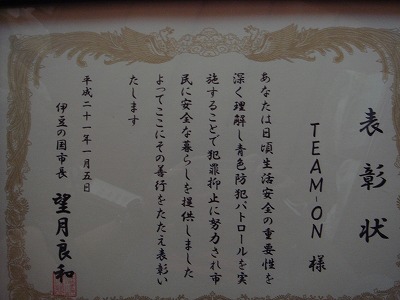 表彰状
TEAM-ON 様
あなたは日頃生活安全の重要性を
深く理解し青色防犯パトロールを実
施することで犯罪抑止に努力され市
民に安全な暮らしを提供しました
よってここにその善行をたたえ表彰い
たします
平成二十一年一月五日
伊豆の国市長 望月良和